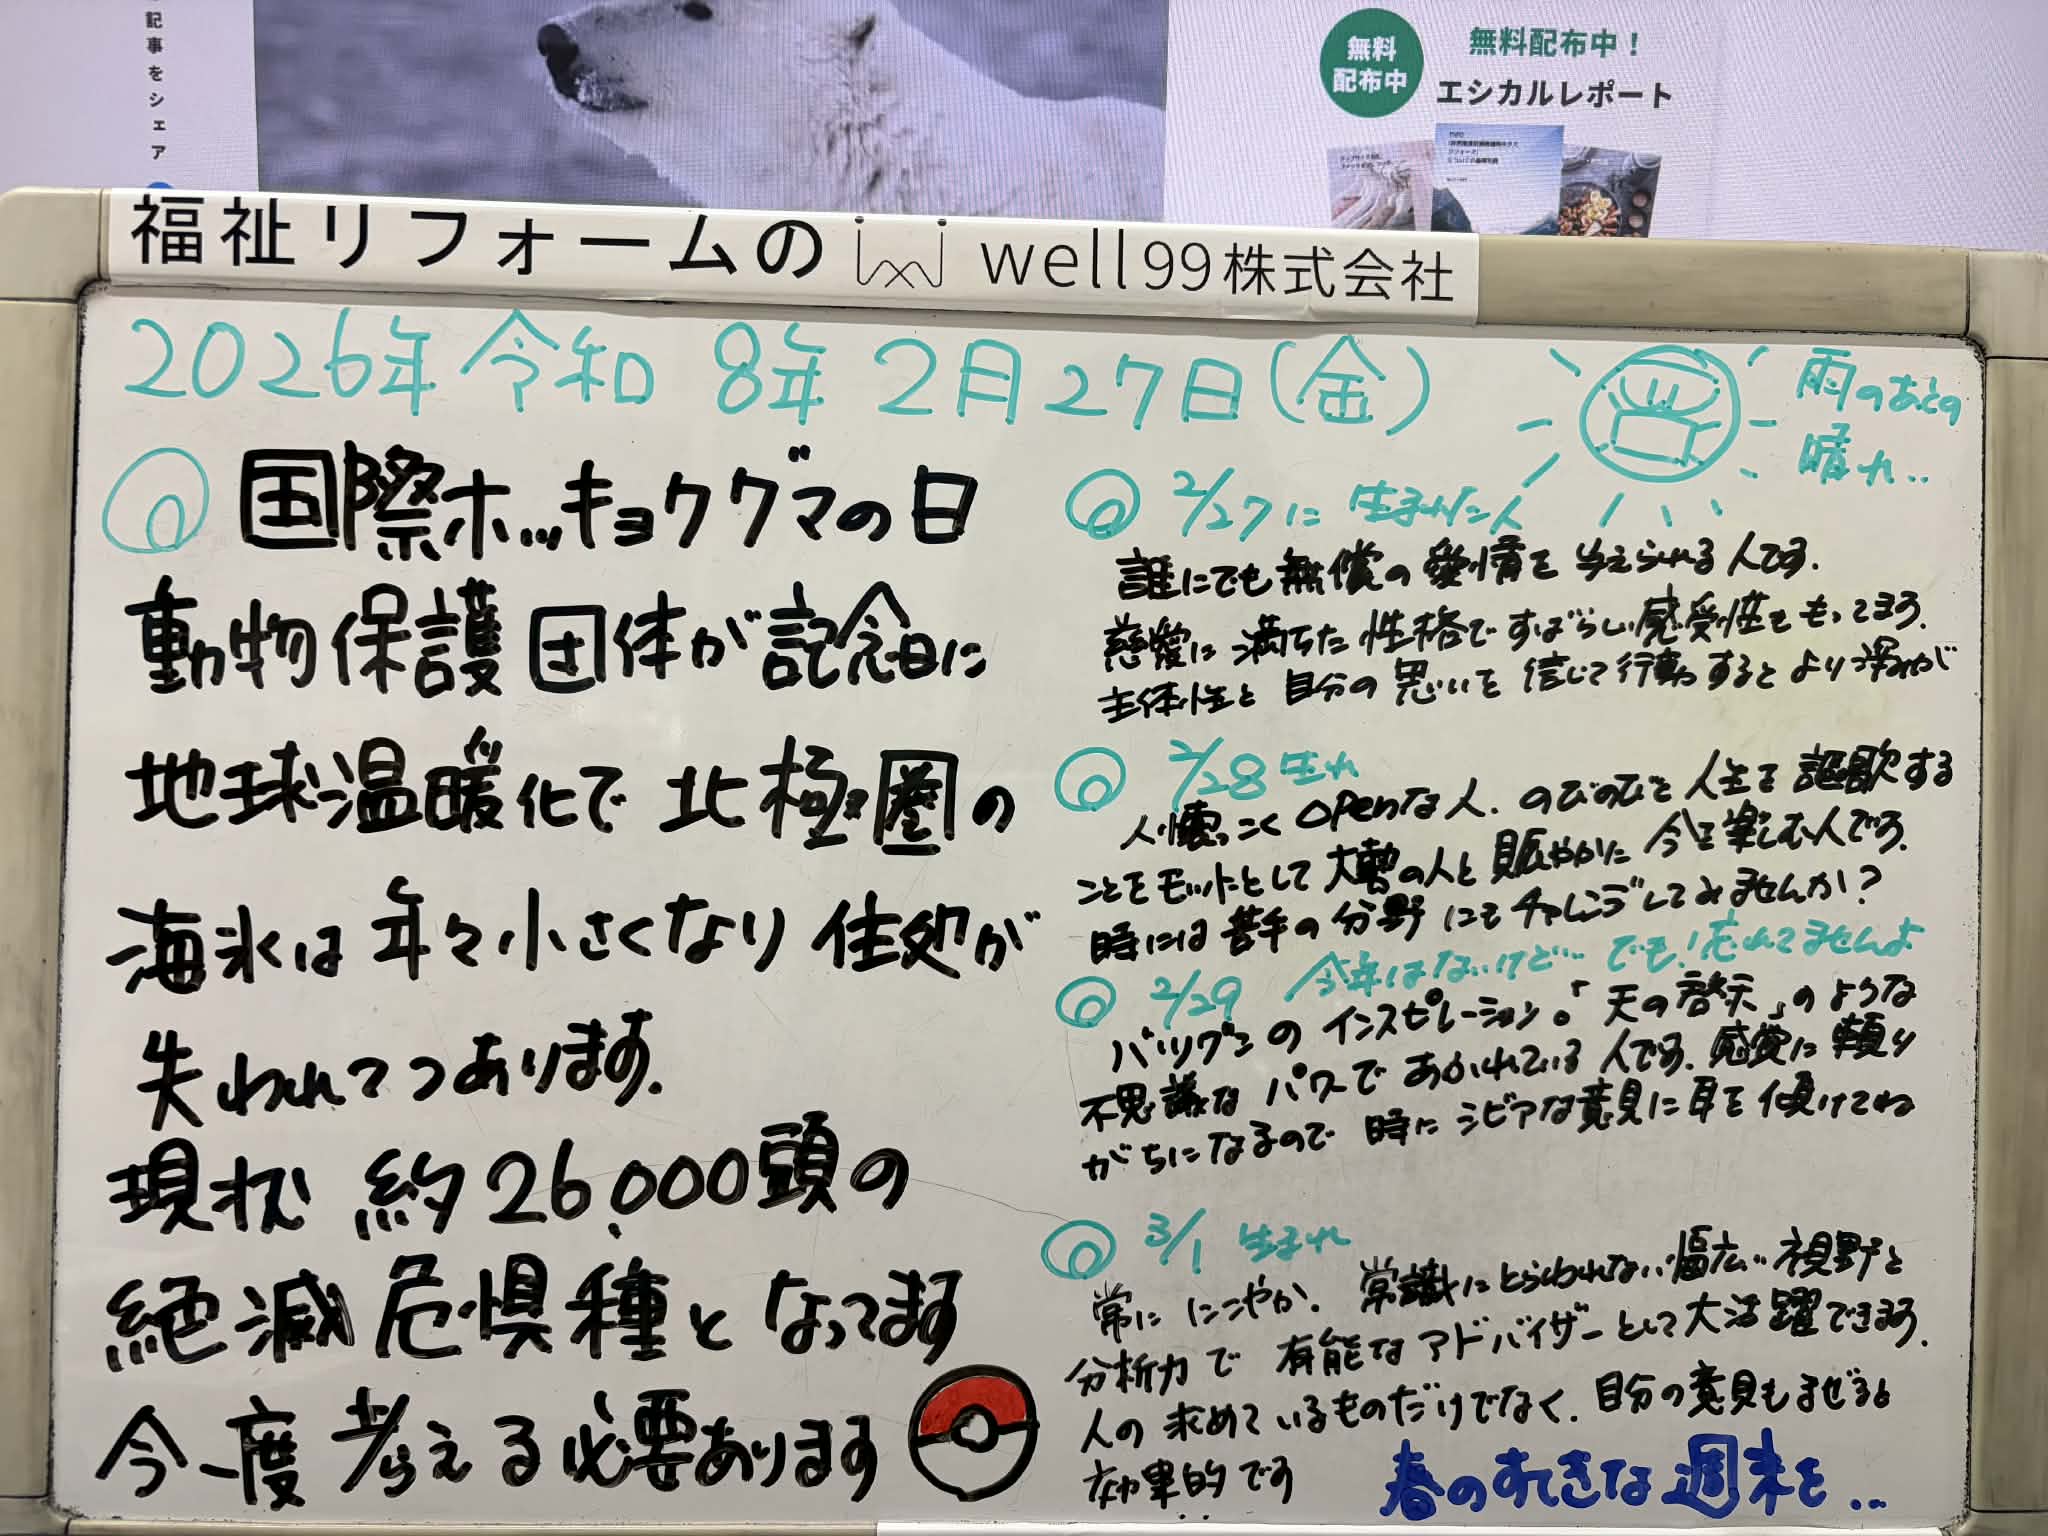 記事をシェア
無料
配布中
無料配布中！
エシカルレポート
福祉リフォームの well99株式会社
2026年令和8年2月27日(金)
雨のあとの
晴れ..
国際ホッキョクグマの日
動物保護団体が記念日に
地球温暖化で北極圏の
海氷は年々小さくなり住処が
失われてつあります.
現状 約26,000頭の
絶滅危惧種となってます
今一度考える必要あります
2/27に生まれた人
誰にでも無償の愛情を与えられる人です.
慈愛に満ちた性格ですばらしい感受性をもってます.
主体性と自分の思いを信じて行動するとより深みが
2/28生れ
人懐っこくOpenな人.のびのびと人生を謳歌する
ことをモットーとして大勢の人と賑やかに今を楽しむ人です.
時には苦手の分野にもチャレンジしてみませんか？
2/29 今年はないけど… でも！忘れてませんよ
バツグンのインスピレーション。「天の啓示」のような
不思議なパワーであふれている人です.感覚に頼り
がちになるので時にシビアな意見に耳を傾けてね
3/1 生まれ
常ににこやか.常識にとらわれない幅広い視野と
分析力で有能なアドバイザーとして大活躍できます.
人の求めているものだけでなく.自分の意見もまぜると
効果的です
春のすてきな週末を…